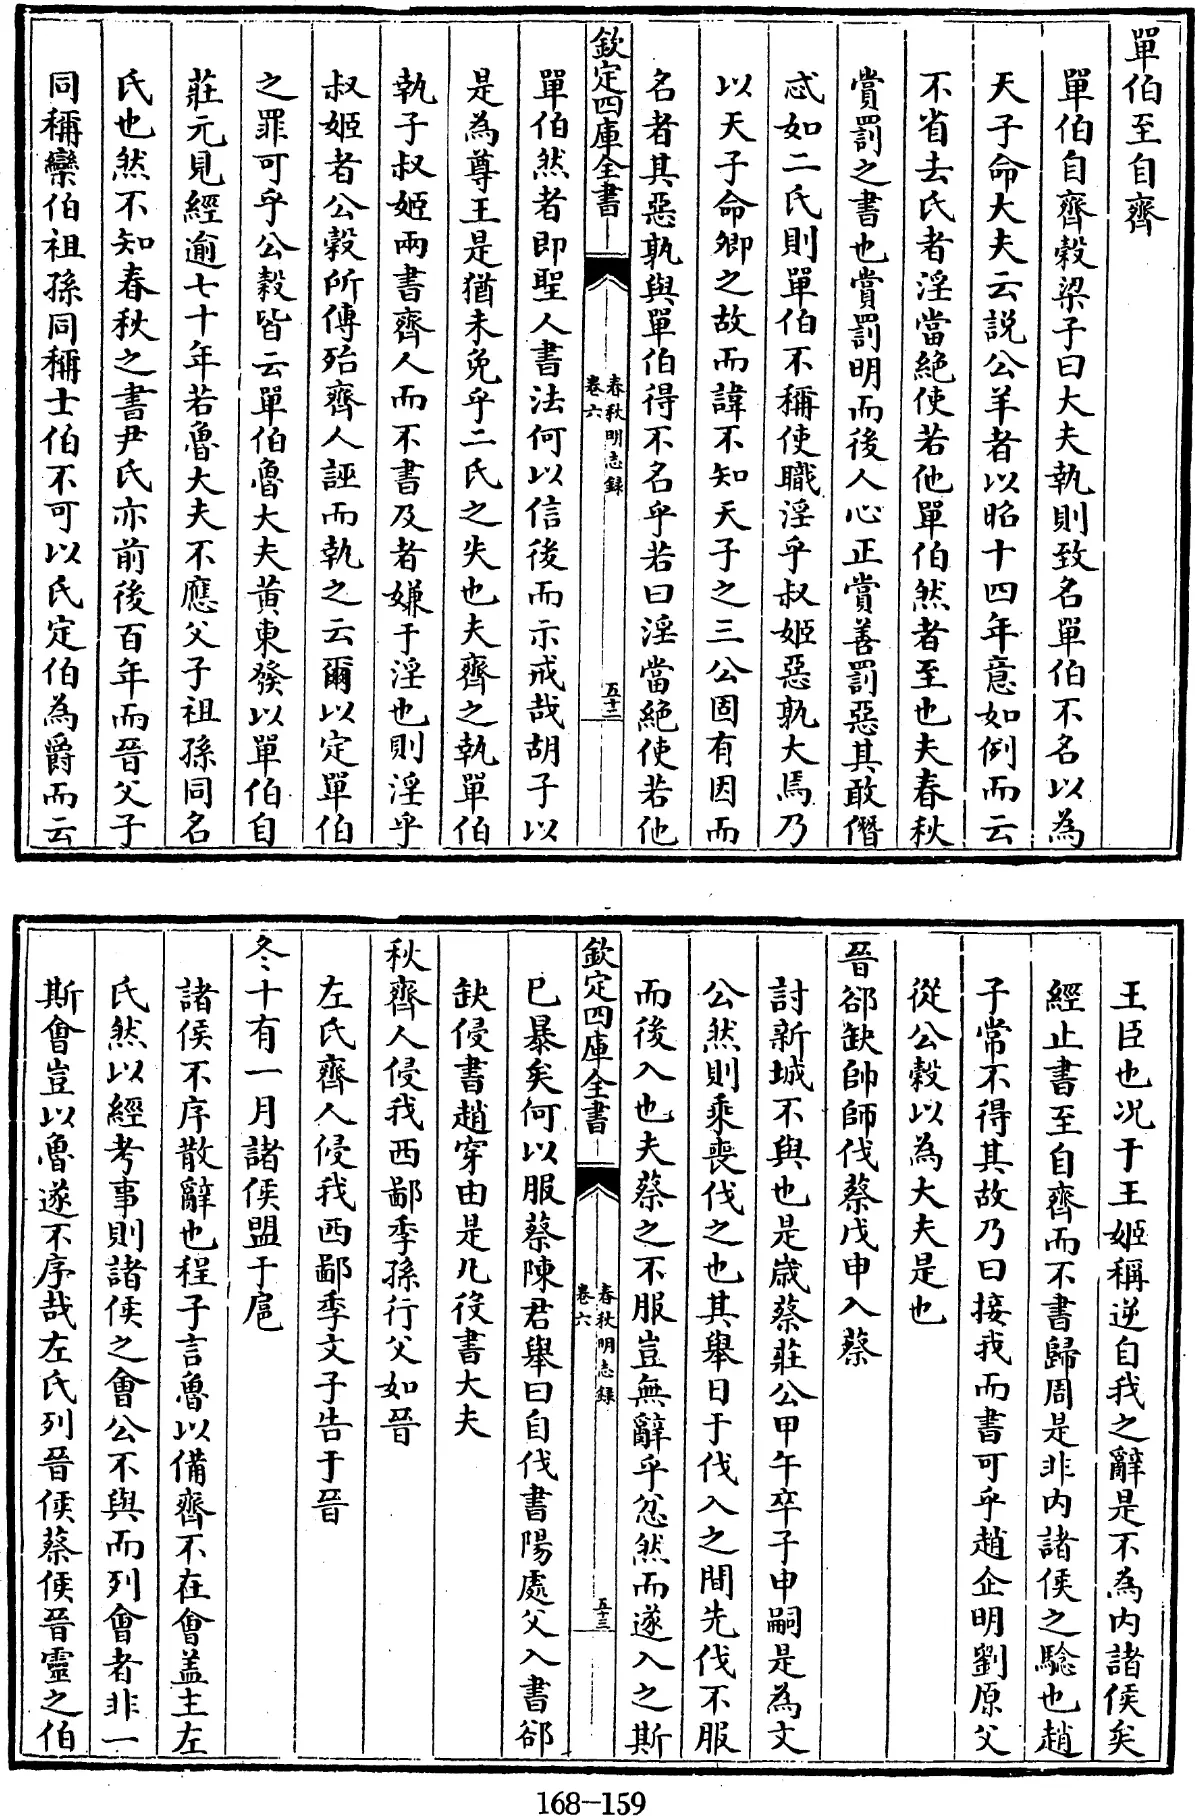 單伯至自齊
單伯自齊穀梁子曰大夫執則致名單伯不名以為
天子命大夫云説公羊者以昭十四年意如例而云
不省去氏者淫當絶使若他單伯然者至也夫春秋
賞罰之書也賞罰明而後人心正賞善罰惡其敢僭
忒如二氏則單伯不稱使職淫乎叔姬惡孰大焉乃
以天子命卿之故而諱不知天子之三公固有因而
名者其惡孰與單伯得不名乎若曰淫當絶使若他
欽定四庫全書
春秋明志録
卷六
五十二
單伯然者即聖人書法何以信後而示戒哉胡子以
是為尊王是猶未免乎二氏之失也夫齊之執單伯
執子叔姬兩書齊人而不書及者嫌于淫也則淫乎
叔姬者公穀所傳殆齊人誣而執之云爾以定單伯
之罪可乎公穀皆云單伯魯大夫黄東發以單伯自
莊元見經逾七十年若魯大夫不應父子祖孫同名
氏也然不知春秋之書尹氏亦前後百年而晉父子
同稱欒伯祖孫同稱士伯不可以氏定伯為爵而云
王臣也况于王姬稱逆自我之辭是不為内諸侯矣
經止書至自齊而不書歸周是非内諸侯之驗也趙
子常不得其故乃曰接我而書可乎趙企明劉原父
從公穀以為大夫是也
晉郤缺帥師伐蔡戊申入蔡
討新城不與也是歳蔡莊公甲午卒子申嗣是為文
公然則乘喪伐之也其舉日于伐入之間先伐不服
而後入也夫蔡之不服豈無辭乎忽然而遂入之斯
欽定四庫全書
春秋明志録
卷六
五十三
已暴矣何以服蔡陳君舉曰自伐書陽處父入書郤
缺侵書趙穿由是凡役書大夫
秋齊人侵我西鄙季孫行父如晉
左氏齊人侵我西鄙季文子告于晉
冬十有一月諸侯盟于扈
諸侯不序散辭也程子言魯以備齊不在會盖主左
氏然以經考事則諸侯之會公不與而列會者非一
斯會豈以魯遂不序哉左氏列晉侯蔡侯晉靈之伯
168-159